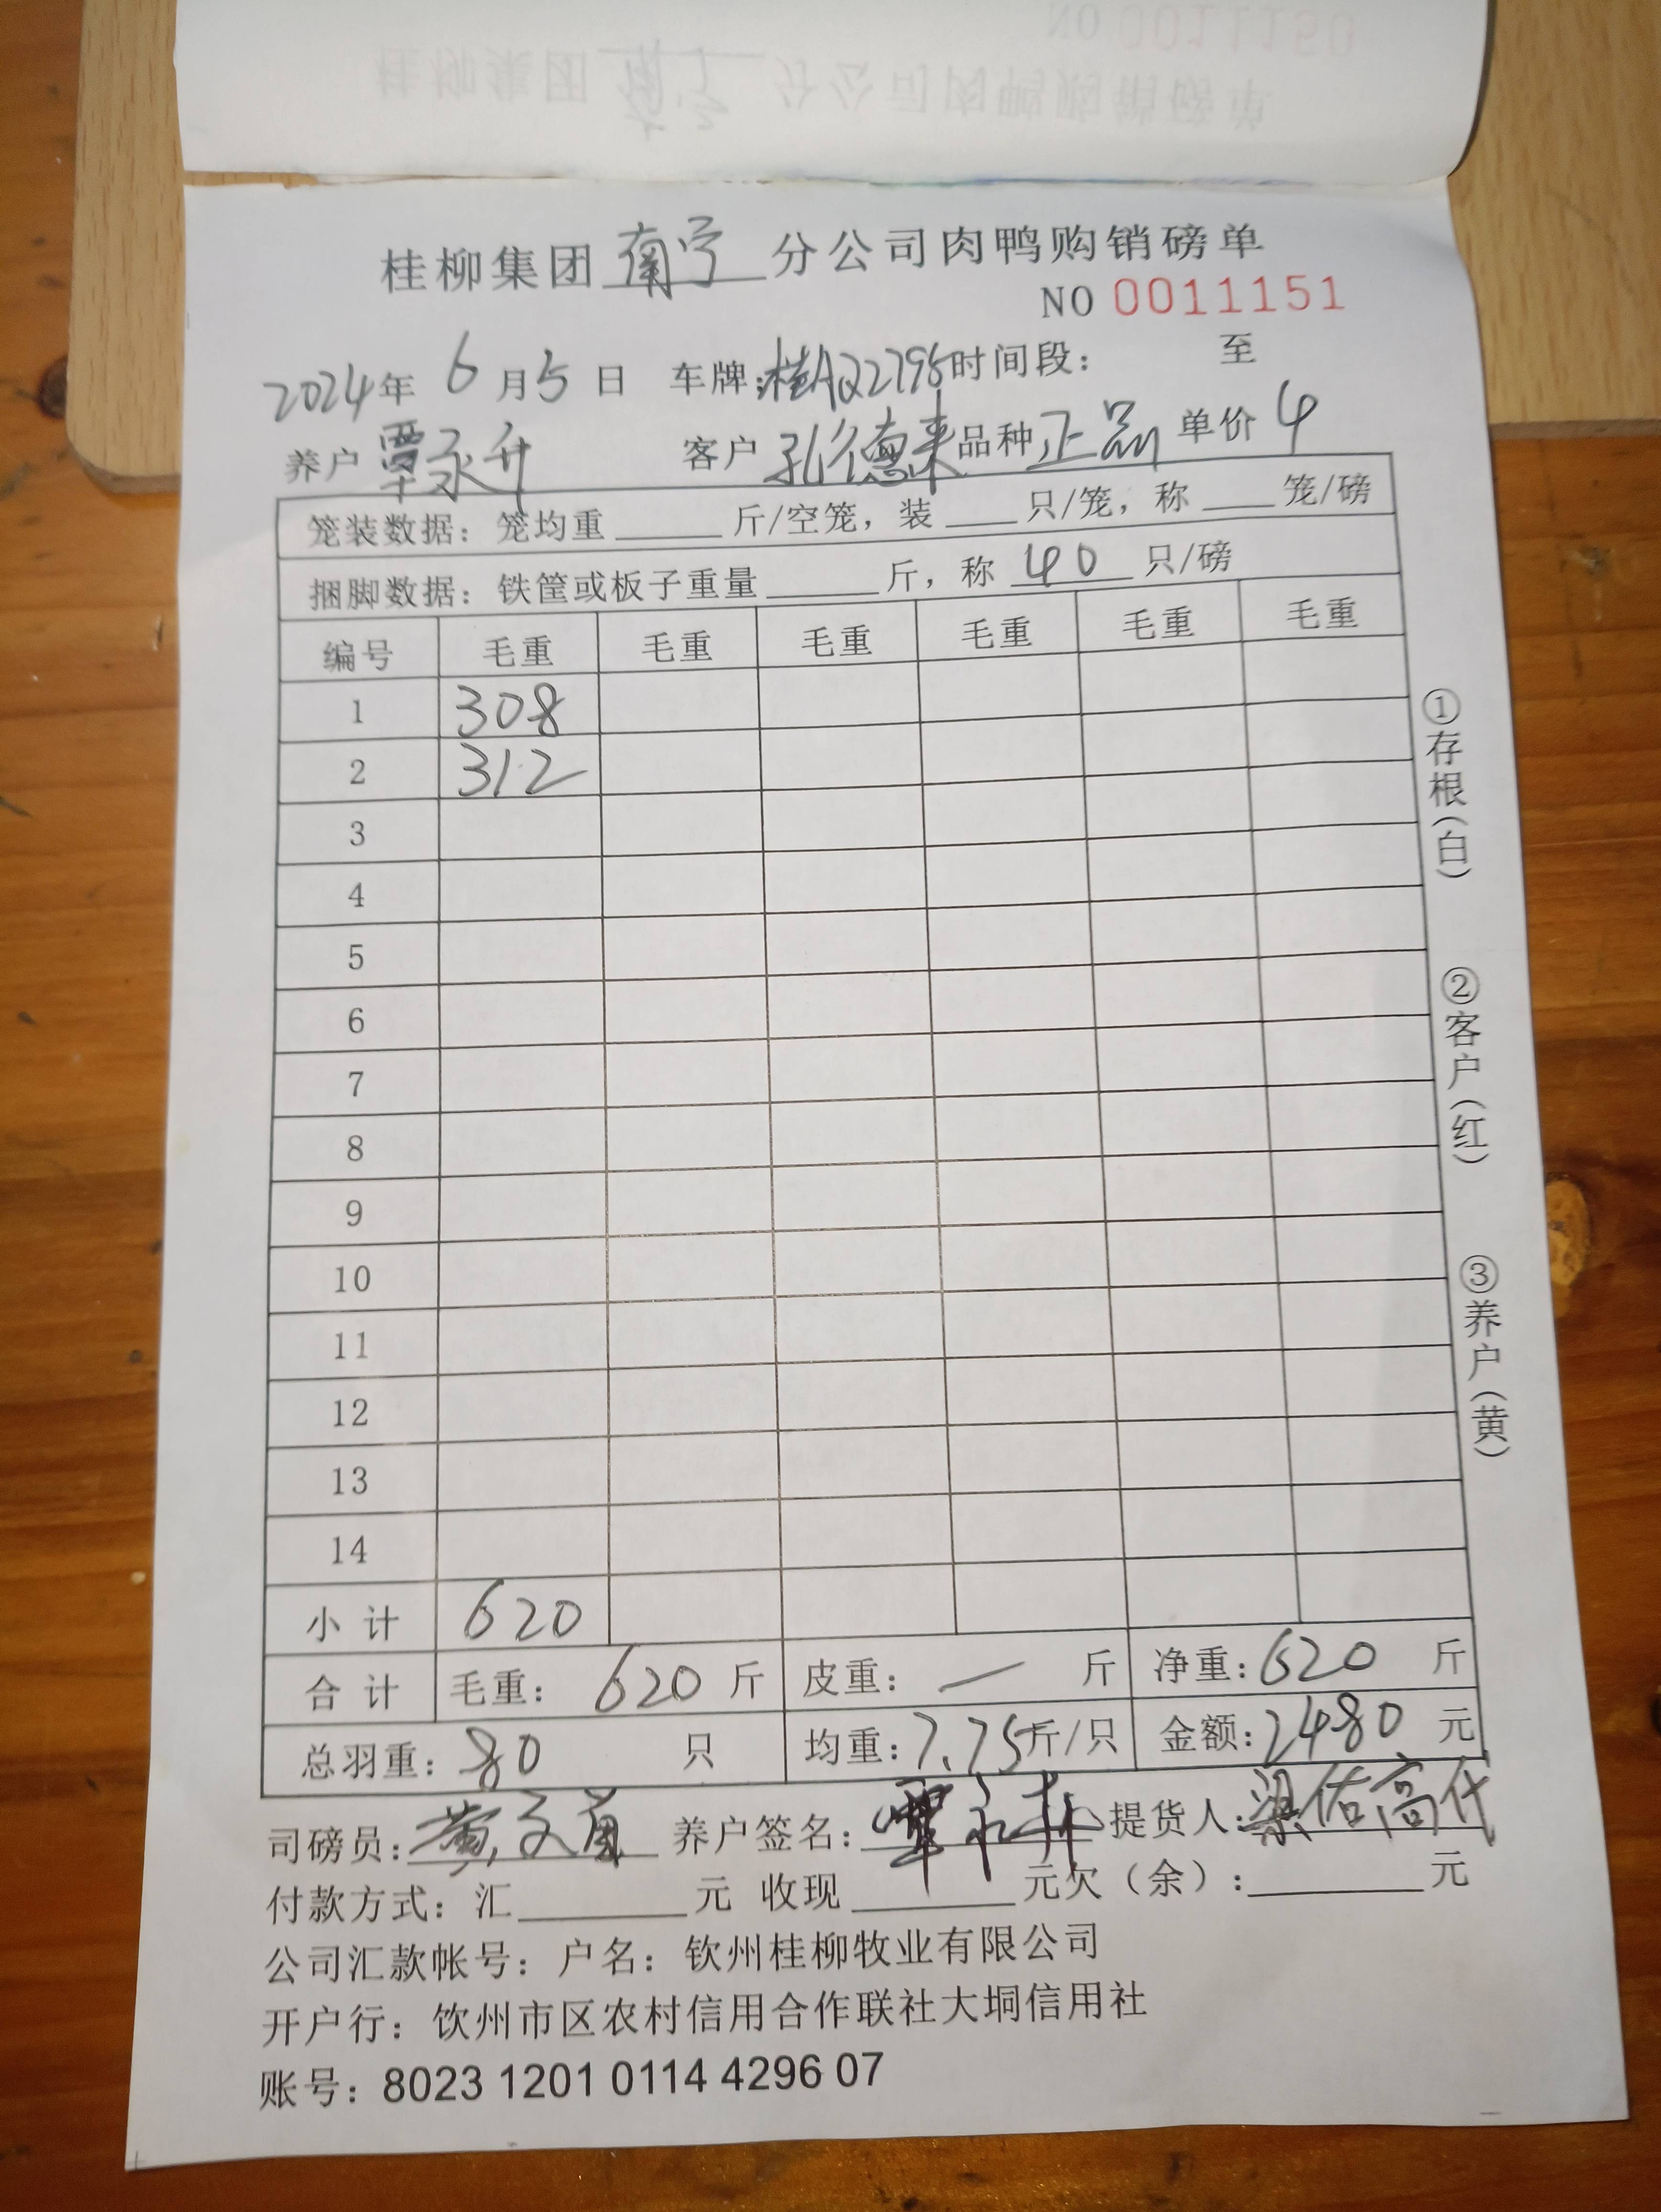 桂柳集团南宁分公司肉鸭购销磅单
NO 0011151
2024年 6月5日 车牌:桂AQ2795时间段: 至
养户 覃永升 客户 孔德来 品种 正品 单价 4
笼装数据: 笼均重____斤/空笼, 装____只/笼, 称____笼/磅
捆脚数据: 铁筐或板子重量____斤, 称 40 只/磅
编号 毛重 毛重 毛重 毛重 毛重 毛重
1 308
2 312
3
4
5
6
7
8
9
10
11
12
13
14
小计 620
合计 毛重: 620 斤 皮重: — 斤 净重: 620 斤
总羽重: 80 只 均重: 7.75斤/只 金额: 2480 元
司磅员: 黄 养户签名: 覃永升 提货人: 梁佑高代
付款方式: 汇____元 收现____元欠(余):____元
公司汇款帐号: 户名: 钦州桂柳牧业有限公司
开户行: 钦州市区农村信用合作联社大垌信用社
账号: 8023 1201 0114 4296 07
①存根(白)
②客户(红)
③养户(黄)